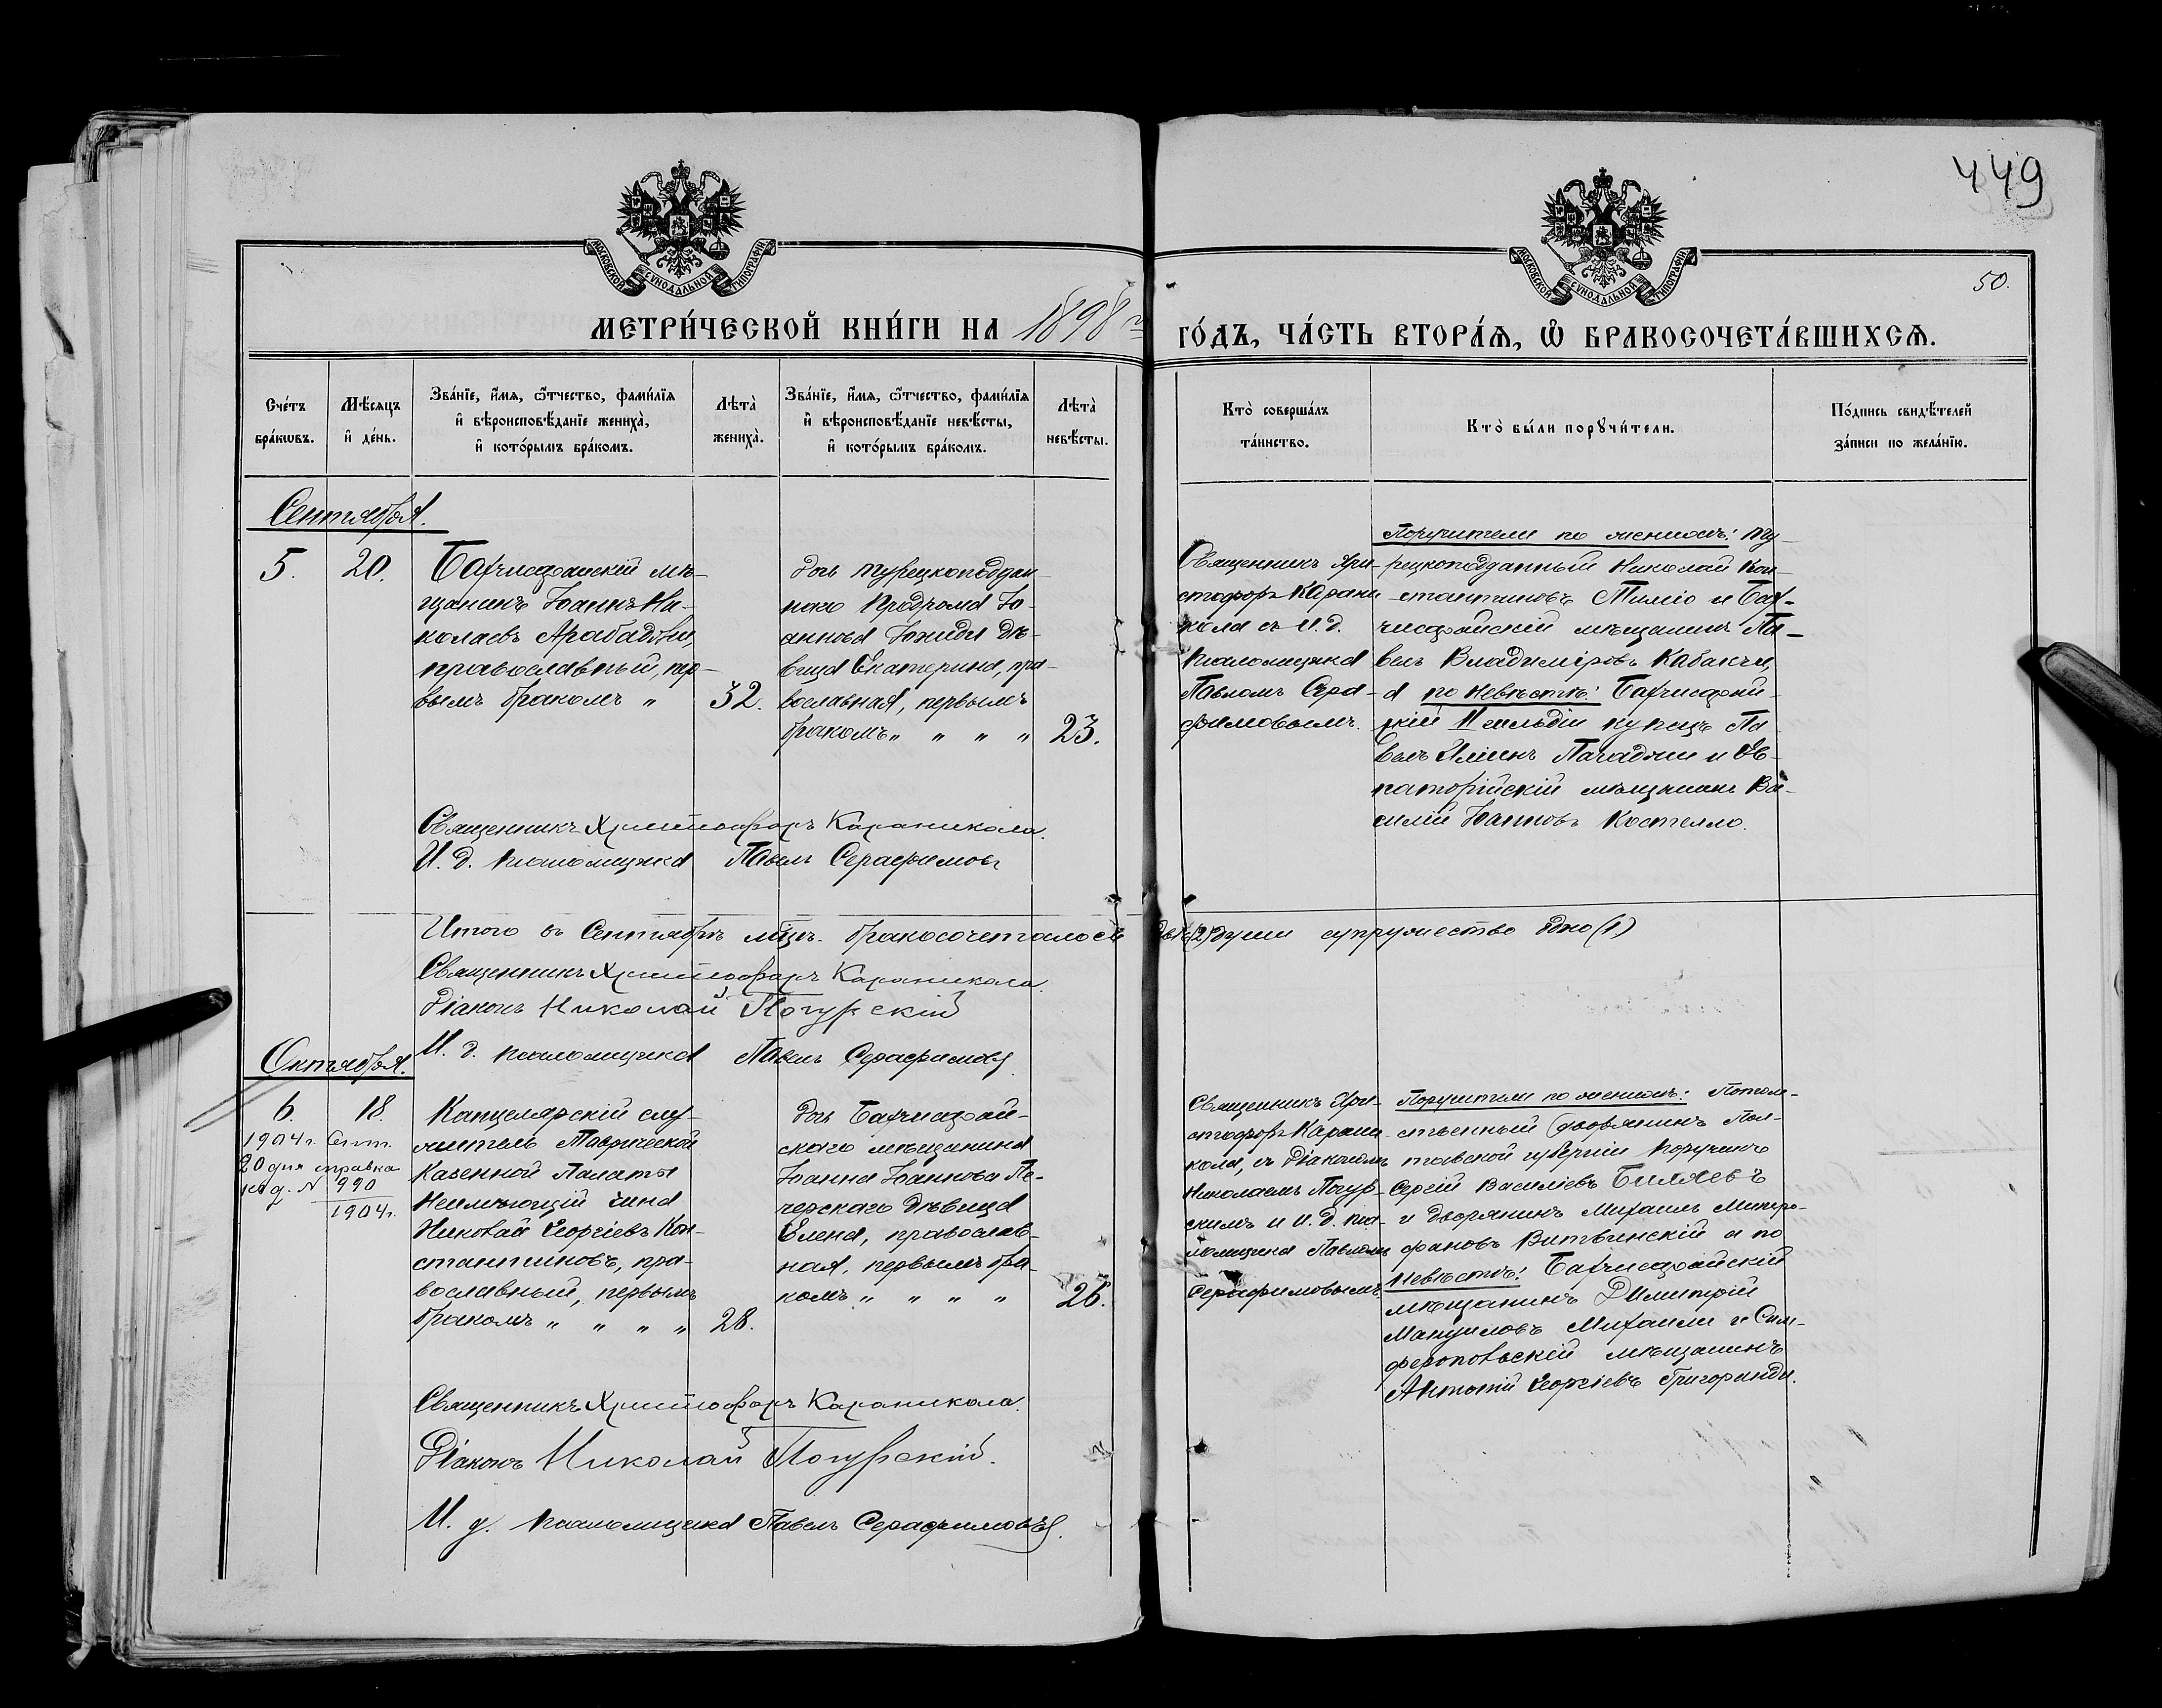 449
50.
МОСКОВСКОЙ СѴНОДАЛЬНОЙ ТИПОГРАФІИ
МОСКОВСКОЙ СѴНОДАЛЬНОЙ ТИПОГРАФІИ
МЕТРИ́ЧЕСКОЙ КНИ́ГИ НА 1898 й ГО́ДЪ, ЧА́СТЬ ВТОРА́Я, Ѡ БРАКОСОЧЕТА́ВШИХСЯ.
Сче́тъ бра́кѡвъ.
Мѣ́сяцъ и҆ де́нь.
Зва́нїе, и҆́мя, ѻ҆́тчество, фами́лїя
и҆ вѣроисповѣ́данїе жениха̀,
и҆ кото́рымъ бра́комъ.
Лѣта̀ жениха̀.
Зва́нїе, и҆́мя, ѻ҆́тчество, фами́лїя
и҆ вѣроисповѣ́данїе невѣ́сты,
и҆ кото́рымъ бра́комъ.
Лѣта̀ невѣ́сты.
Кто̀ соверша́лъ
та́инство.
Кто̀ бы́ли порꙋчи́тели.
По́дпись свидѣ́телей
за́писи по жела́нїю.
Сентября.
5.
20.
Бахчисарайскій мѣ-
щанинъ Іоаннъ Ни-
колаевъ Арабаджи,
православный, пер-
вымъ бракомъ „
32.
дочь турецкоподдан-
наго Продрома Іо-
аннова дѣ-
вица Екатерина, пра-
вославная, первымъ
бракомъ „ „ „ „
23.
Священникъ Хри-
стофоръ Карани-
кола съ И. д.
псаломщика
Павломъ Сера-
фимовымъ.
Поручители по женихѣ: ту-
рецкоподданный Николай Кон-
стантиновъ и Бах-
чисарайскій мѣщанинъ Па-
велъ Владиміровъ Кабакчи,
а по невѣстѣ: Бахчисарай-
скій II гильдіи купецъ Па-
велъ Пачаджи и Ев-
паторійскій мѣщанинъ Ва-
силій Іоанновъ Костелло.
Священникъ Христофоръ Караникола.
И. д. псаломщика Павелъ Серафимовъ
Итого въ Сентябрѣ мѣсяцѣ бракосочеталось двѣ (2) души супружество одно (1)
Священникъ Христофоръ Караникола.
Діаконъ Николай Погурскій
И. д. псаломщика Павелъ Серафимовъ.
Октября.
6.
18.
1904 г. Сент.
20 дня справка
990
1904 г.
Канцелярскій слу-
житель Таврической
Казенной Палаты
Неимѣющій чина
Николай Георгіевъ Кон-
стантиновъ, пра-
вославный, первымъ
бракомъ „ „ „ „
28.
дочь Бахчисарай-
скаго мѣщанина
Іоанна Іоаннова Пе-
черскаго дѣвица
Елена, православ-
ная, первымъ бра-
комъ „ „ „ „
26.
Священникъ Хри-
стофоръ Карани-
кола, съ діакономъ
Николаемъ Погур-
скимъ и И. д. пса-
ломщика Павломъ
Серафимовымъ.
Поручители по женихѣ: Потом-
ственный дворянинъ Пол-
тавской губерніи поручикъ
Сергій Василіевъ Биляевъ
и дворянинъ Михаилъ Митро-
фановъ Витвинскій а по
невѣстѣ: Бахчисарайскій
мѣщанинъ Димитрій
Мануиловъ Михаили и Сим-
феропольскій мѣщанинъ
Антоній Георгіевъ Григориади.
Священникъ Христофоръ Караникола.
Діаконъ Николай Погурскій.
И. д. псаломщика Павелъ Серафимовъ.